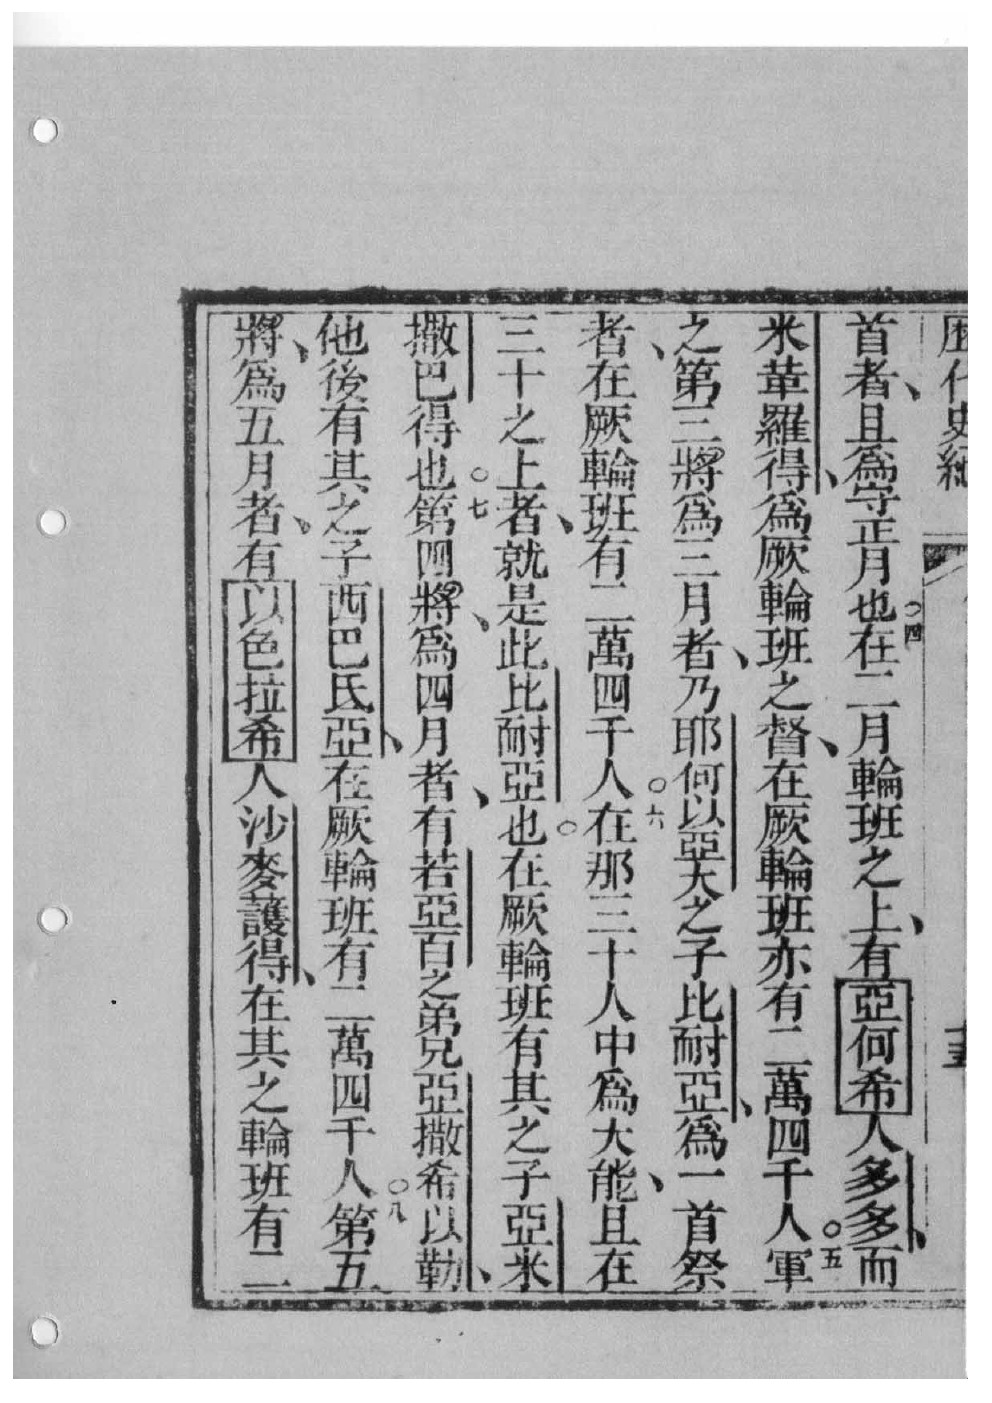 歷代史紀
十五
首者、且爲守正月也○四在二月輪班之上、有亞何希人多多、而
米葦羅得、爲厥輪班之督、在厥輪班亦有二萬四千人○五軍
之第三將爲三月者、乃耶何以亞大之子比耐亞、爲一首祭
者、在厥輪班有二萬四千人○六在那三十人中爲大能、且在
三十之上者、就是此比耐亞也○在厥輪班有其之子亞米
撒巴得也○七第四將、爲四月者、有若亞百之弟兄亞撒希以勒、
他後有其之子西巴氏亞、在厥輪班有二萬四千人○八第五
將、爲五月者、有以色拉希人沙麥護得、在其之輪班有二